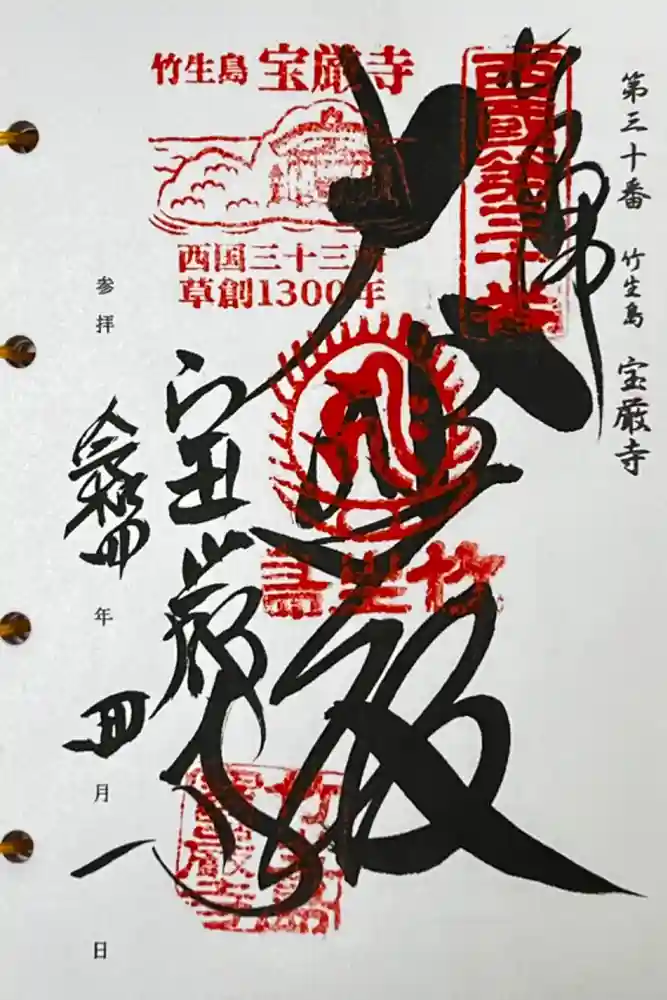 第三十番 竹生島 宝厳寺
西國第三十番
大悲殿
竹生島 宝厳寺
西国三十三所
草創1300年
竹生島
宝厳寺
竹生島
寶嚴寺
参拝 令和四年 四月一日